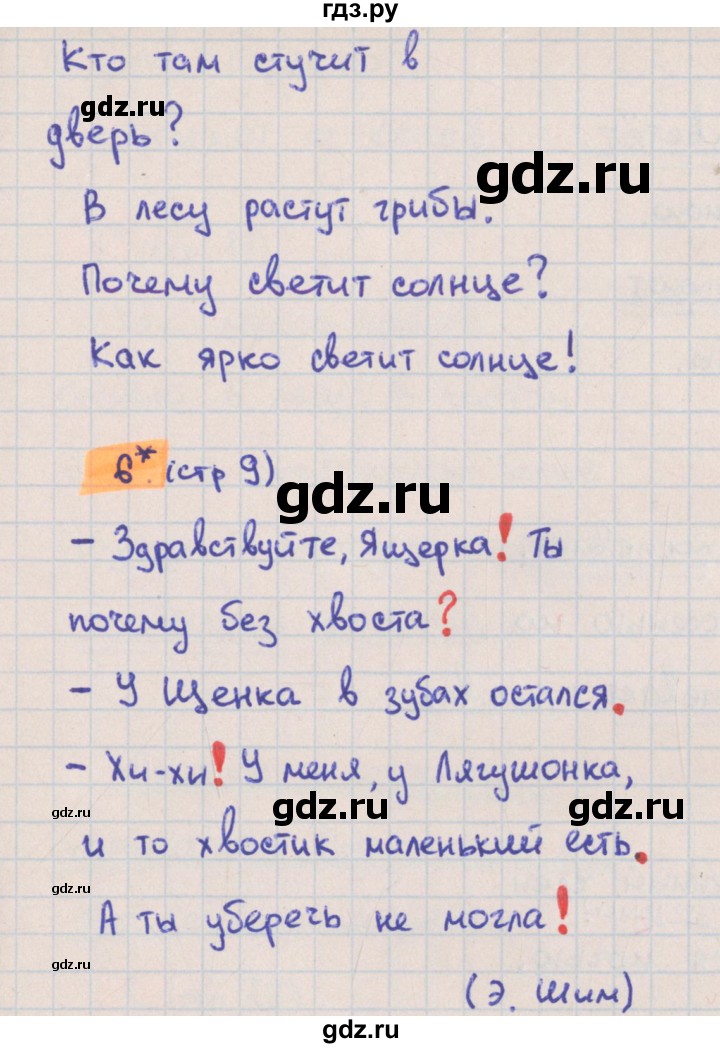 гдз.ру
Кто там стучит в
gdz.ru
дверь?
gdz.ru
В лесу растут грибы.
Почему светит солнце?
gdz.ru
Как ярко светит солнце!
6*. (стр 9)
gdz.ru
gdz.ru
- Здравствуйте, Ящерка! Ты
почему без хвоста?
- У Щенка в зубах остался.
- Хи-хи! У меня, у Лягушонка,
gdz.ru
gdz.ru
gdz.ru
и то хвостик маленький есть.
gdz.ru
А ты уберечь не могла!
gdz.ru
(Э. Шим)
gdz.ru